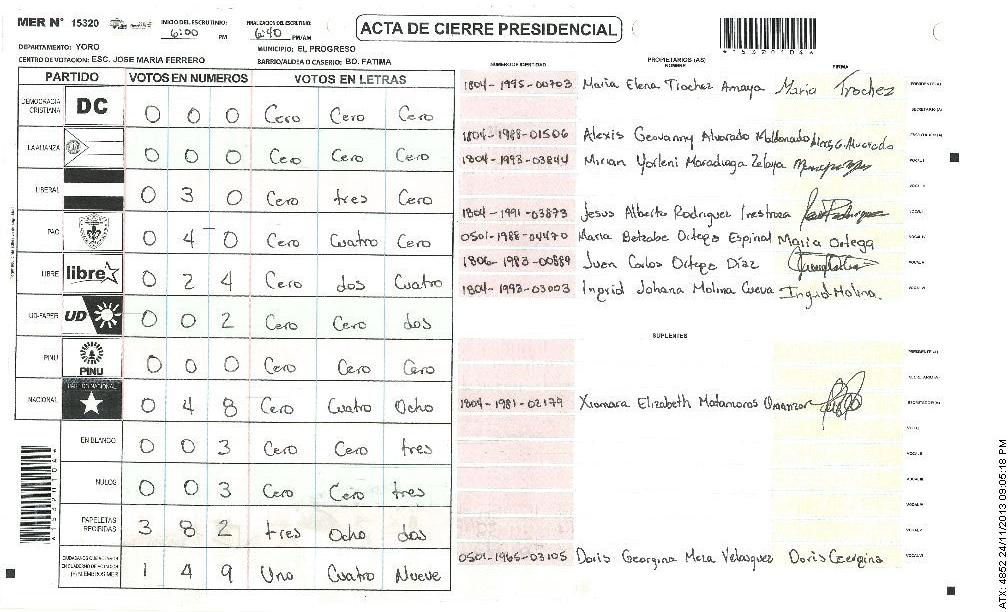 MER N° 15320
INICIO DEL ESCRUTINIO: 6:00 PM
FINALIZACION DEL ESCRUTINIO: 6:40 PM/AM
ACTA DE CIERRE PRESIDENCIAL
DEPARTAMENTO: YORO
MUNICIPIO: EL PROGRESO
CENTRO DE VOTACION: ESC. JOSE MARIA FERRERO
BARRIO/ALDEA O CASERIO: BD. FATIMA
PARTIDO VOTOS EN NUMEROS VOTOS EN LETRAS
DEMOCRACIA CRISTIANA DC 0 0 0 Cero Cero Cero
LA ALIANZA 0 0 0 Cero Cero Cero
LIBERAL 0 3 0 Cero tres Cero
PAC 0 4 0 Cero Cuatro Cero
LIBRE libre 0 2 4 Cero dos Cuatro
UD-FAPER UD 0 0 2 Cero Cero dos
PINU PINU 0 0 0 Cero Cero Cero
NACIONAL PARTIDO NACIONAL 0 4 8 Cero Cuatro Ocho
EN BLANCO 0 0 3 Cero Cero tres
NULOS 0 0 3 Cero Cero tres
PAPELETAS RECIBIDAS 3 8 2 tres Ocho dos
1 4 9 Uno Cuatro Nueve
NUMERO DE IDENTIDAD PROPIETARIOS (AS) NOMBRE FIRMA
1804-1995-00703 Maria Elena Trochez Amaya Maria Trochez PRESIDENTE (A)
SECRETARIO (A)
1804-1988-01506 Alexis Geovanny Alvarado Maldonado ESCRUTADOR (A)
1804-1993-03844 Mirian Yorleni Maradiaga Zelaya VOCAL I
VOCAL II
1804-1991-03873 Jesus Alberto Rodriguez Inestroza VOCAL III
0501-1988-04470 Maria Betzabe Ortega Espinal Maria Ortega VOCAL IV
1806-1983-00889 Juan Carlos Ortega Díaz VOCAL V
1804-1993-03003 Ingrid Johana Molina Cueva Ingrid Molina. VOCAL VI
SUPLENTES
PRESIDENTE (A)
SECRETARIO (A)
1804-1981-02179 Xiomara Elizabeth Matamoros ESCRUTADOR (A)
VOCAL I
VOCAL II
VOCAL III
VOCAL IV
VOCAL V
0501-1965-03105 Doris Georgina Meza Velasquez Doris Georgina VOCAL VI
ATX: 4852 24/11/2013 09:05:18 PM